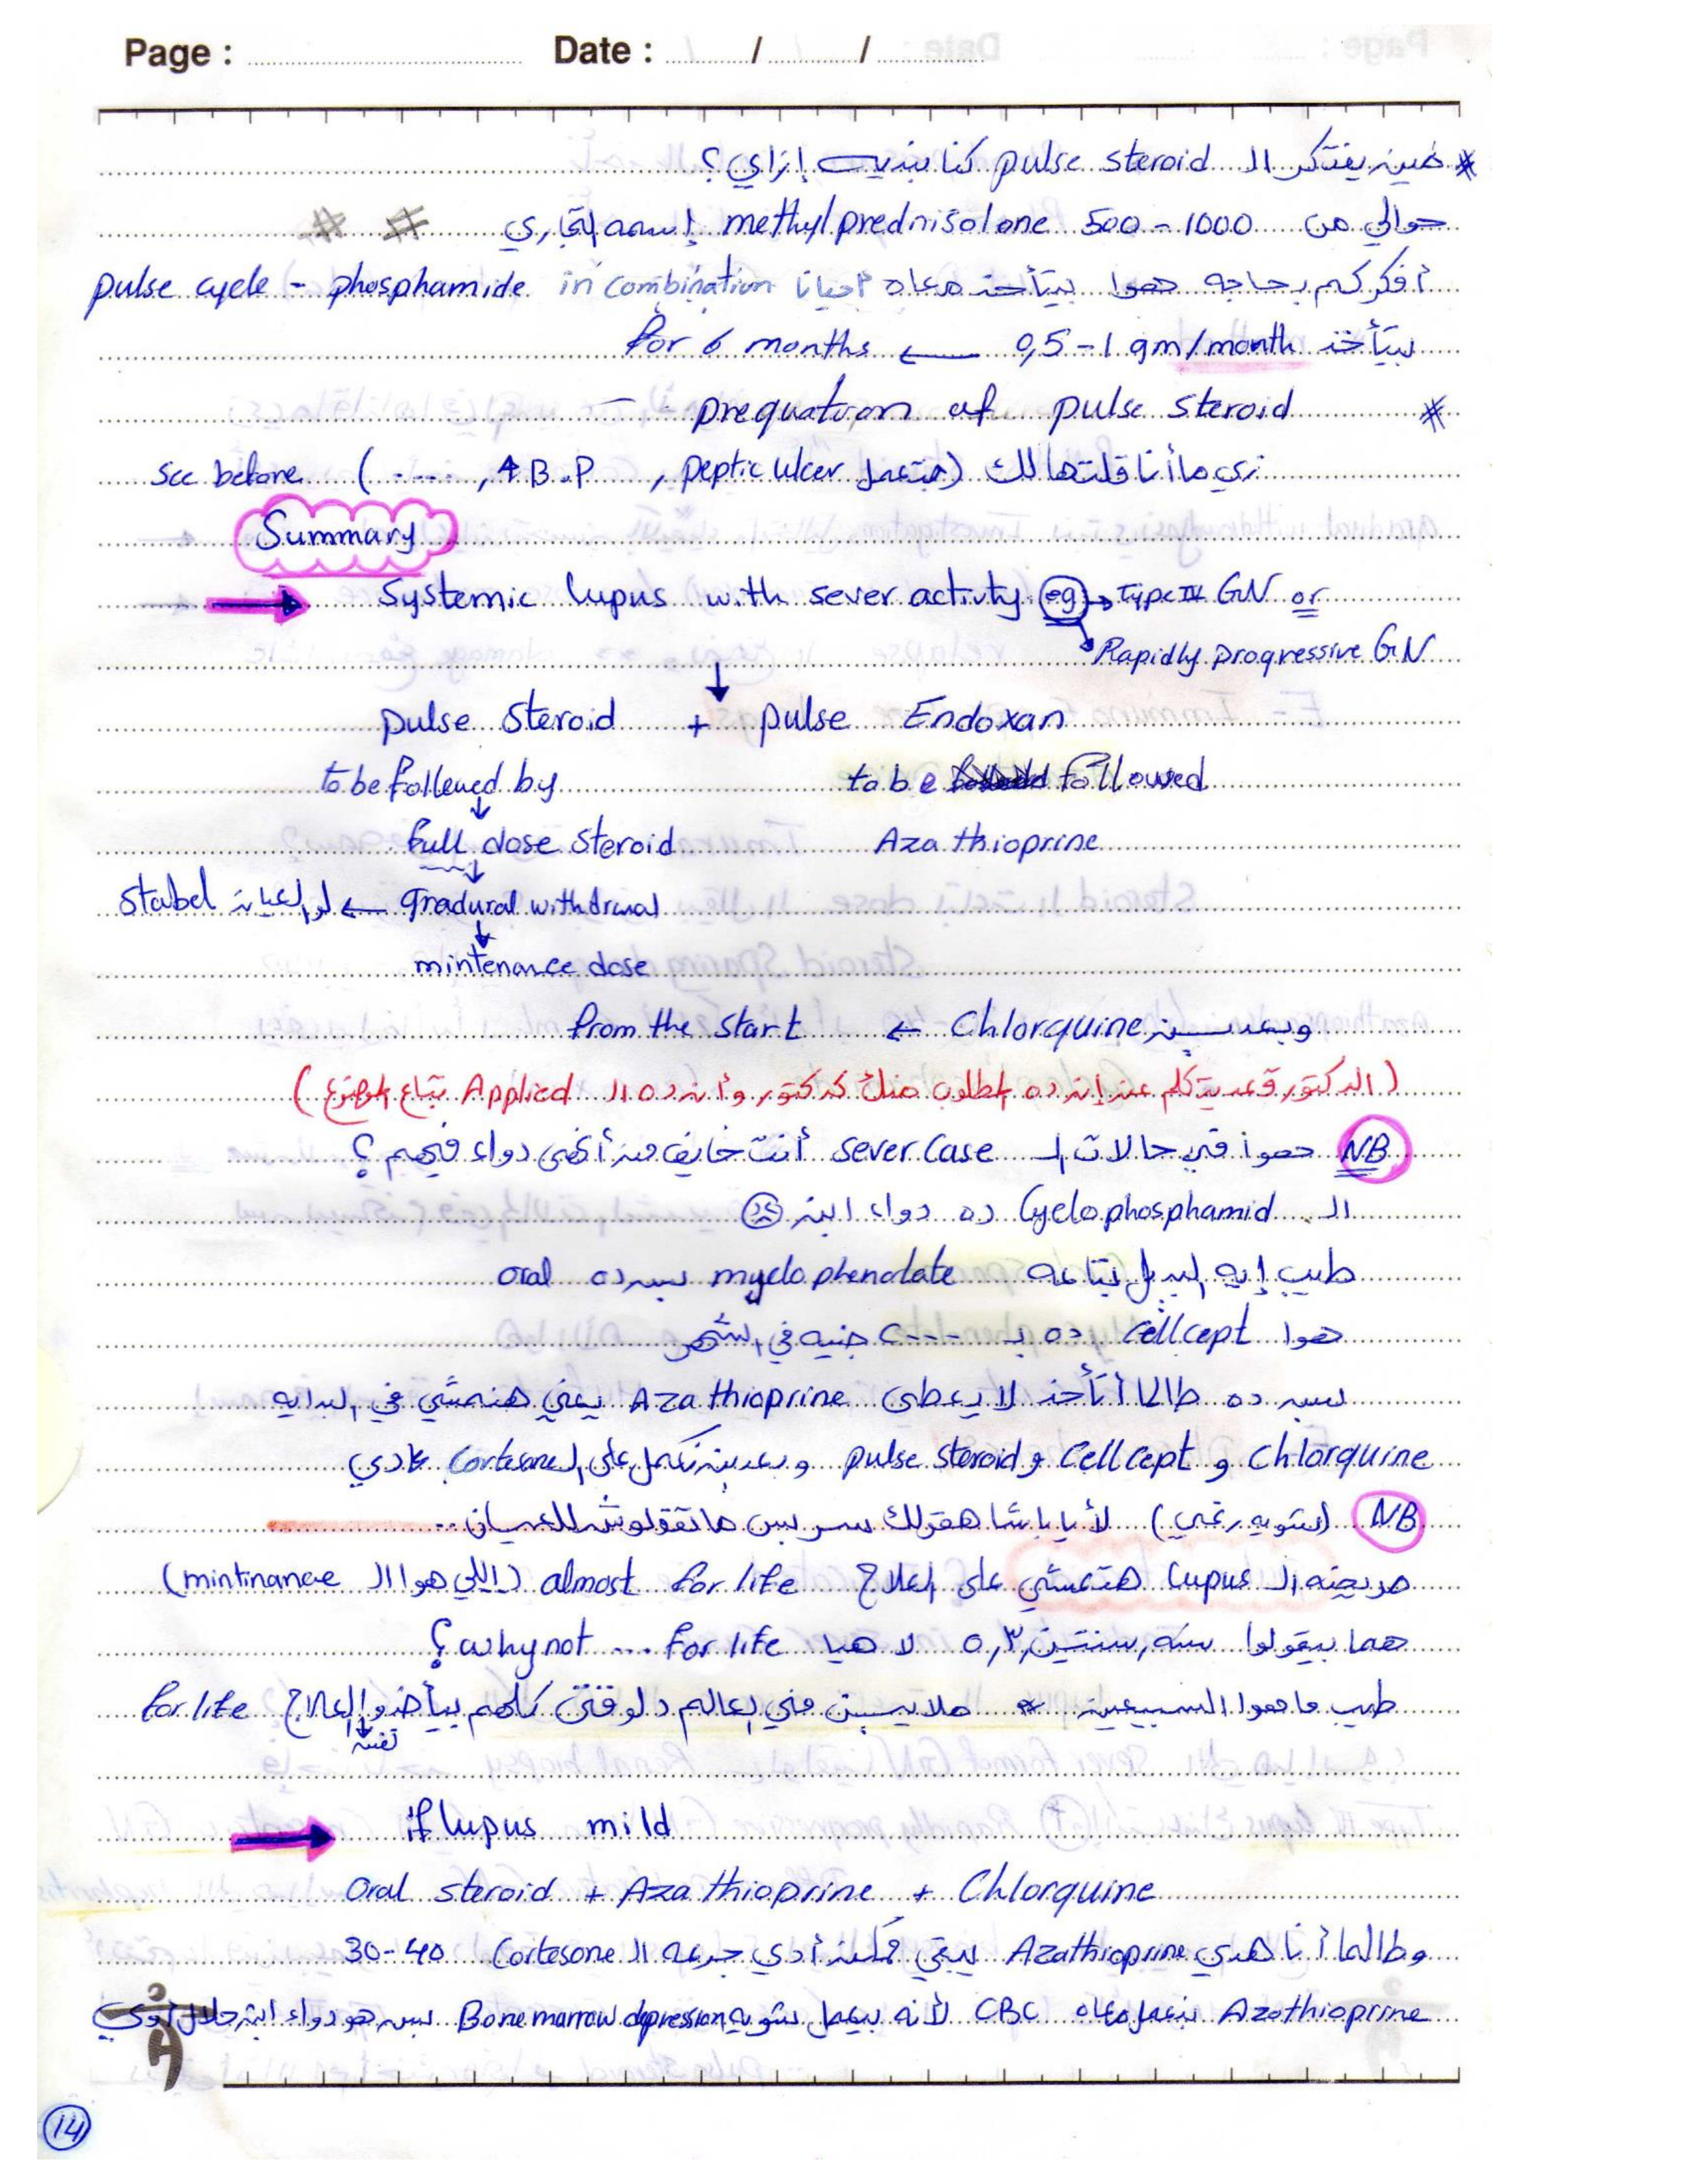 Page : Date : / /
* مين يفتكر الـ pulse steroid كنا بنديه إزاي ؟
حوالي من 500 - 1000 methylprednisolone إسمه التجاري # #
أفكركم بحاجه هوا بيتأخد معاه أحيانا in combination pulse cycle - phosphamide
بيتأخد 0,5 - 1 gm/month ← for 6 months
* prequatuon of pulse steroid –
زي ما أنا قلتها لك (هتعمل peptic ulcer , ↑B.P , ....) see before
Summary
→ Systemic lupus with sever activity eg → Type IV GN or
Rapidly progressive GN
↓
pulse steroid + pulse Endoxan
to be followed by to be followed
↓
full dose steroid Aza thioprine
↓
gradural withdrwal ← لو العيانه stabel
↓
mintenance dose
وبعدين Chlorquine ← from the start
( الدكتور قعد يتكلم عن إن ده المطلوب منك كدكتور وأن ده الـ Applied بتاع الموضوع )
NB هوا في حالات الـ sever case أنت خايف من أنهي دواء فيهم ؟
الـ Cyclophosphamid ده دواء ابن
طيب إيه البديل بتاعه myclophenolate بس ده oral
هوا Cellcept ده بـ ---- جنيه في الشهر
بس ده طالما أتأخد لا يعطى Aza thioprine يعني هنمشي في البدايه
chlorquine و Cellcept و pulse steroid وبعدين نكمل على الـ cortesone عادي
NB (شويه رغي) لأ يا باشا هقولك سر بس ماتقولوش للعيان ..
مريضه الـ Lupus هتمشي على العلاج almost for life (اللي هوا الـ mintinance)
هما بيقولوا سنه, سنتين, ٣, ٥ لا هيا for life ... why not ؟
طيب ما هوا السبيعين * ملايين في العالم دلوقتي كلهم بيأخدوا العلاج for life
↓
نفسه
→ if lupus mild
Oral steroid + Aza thioprine + Chlorquine
وطالما أنا هدي Azathioprine يبقي ممكن أدي جرعه الـ Cortesone 30-40
Azothioprine بنعمل معاه CBC لأنه بيعمل شويه Bone marrow depression بس هو دواء ابن حلال أوي
14